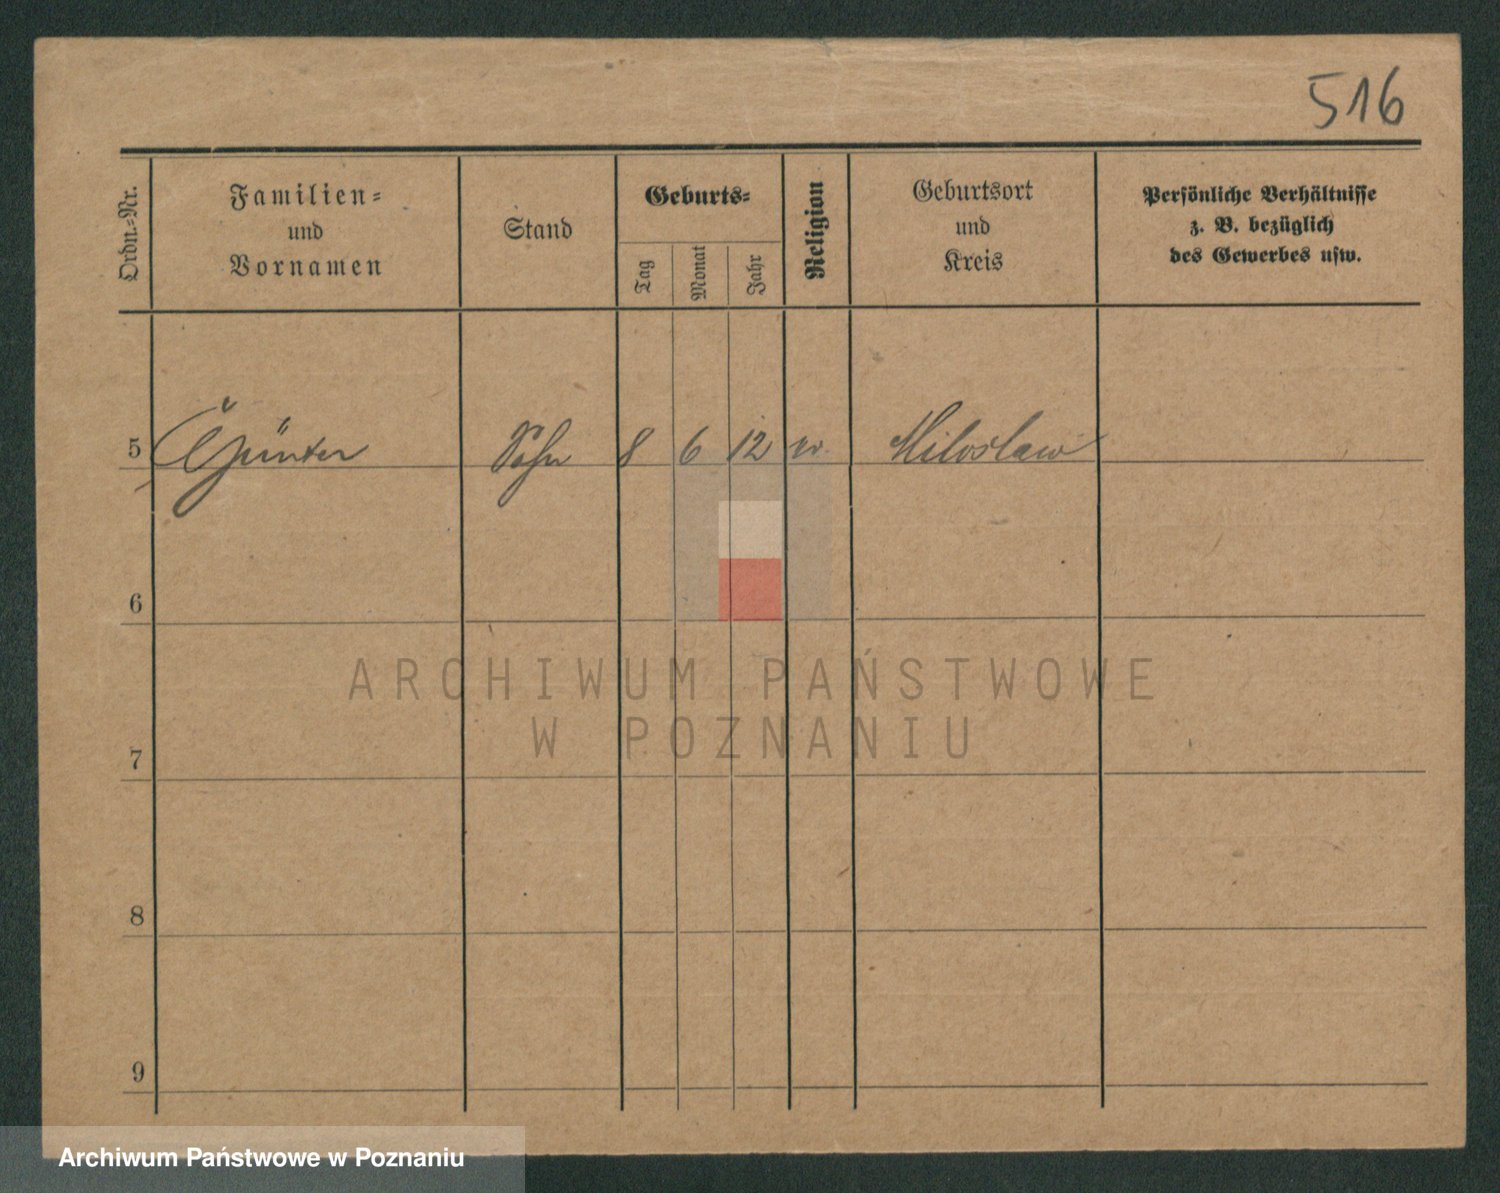 516
Ordn.=Nr.
Familien=
und
Vornamen
Stand
Geburts=
Tag
Monat
Jahr
Religion
Geburtsort
und
Kreis
Persönliche Verhältnisse
z. B. bezüglich
des Gewerbes usw.
5 Günter Sohn 8 6 12 Miloslaw
6
7
8
9
ARCHIWUM PAŃSTWOWE
W POZNANIU
Archiwum Państwowe w Poznaniu